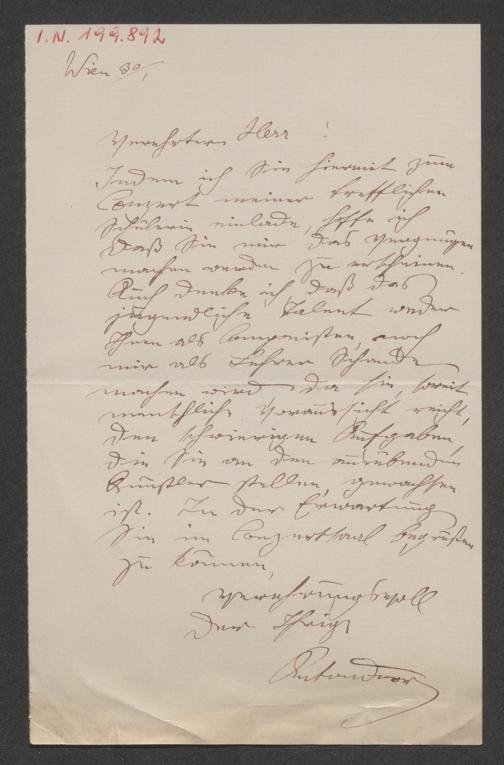 I.N. 199.892
Wien 30/1
Verehrter Herr!
Indem ich Sie hiermit zum
Conzert meiner trefflichen
Schülerin einlade, hoffe ich
daß Sie mir das Vergnügen
machen werden zu erscheinen.
Auch denke ich, daß das
jugendliche Talent weder
Ihnen als Componisten, noch
mir als Lehrer Schande
machen wird, da sie, soweit
menschliche Voraussicht reicht,
den schwierigen Aufgaben,
die Sie an den ausübenden
Künstler stellen, gewachsen
ist. In der Erwartung
Sie im Conzertsaal begrüßen
zu können,
verehrungsvoll
der Ihrige
Anton Door